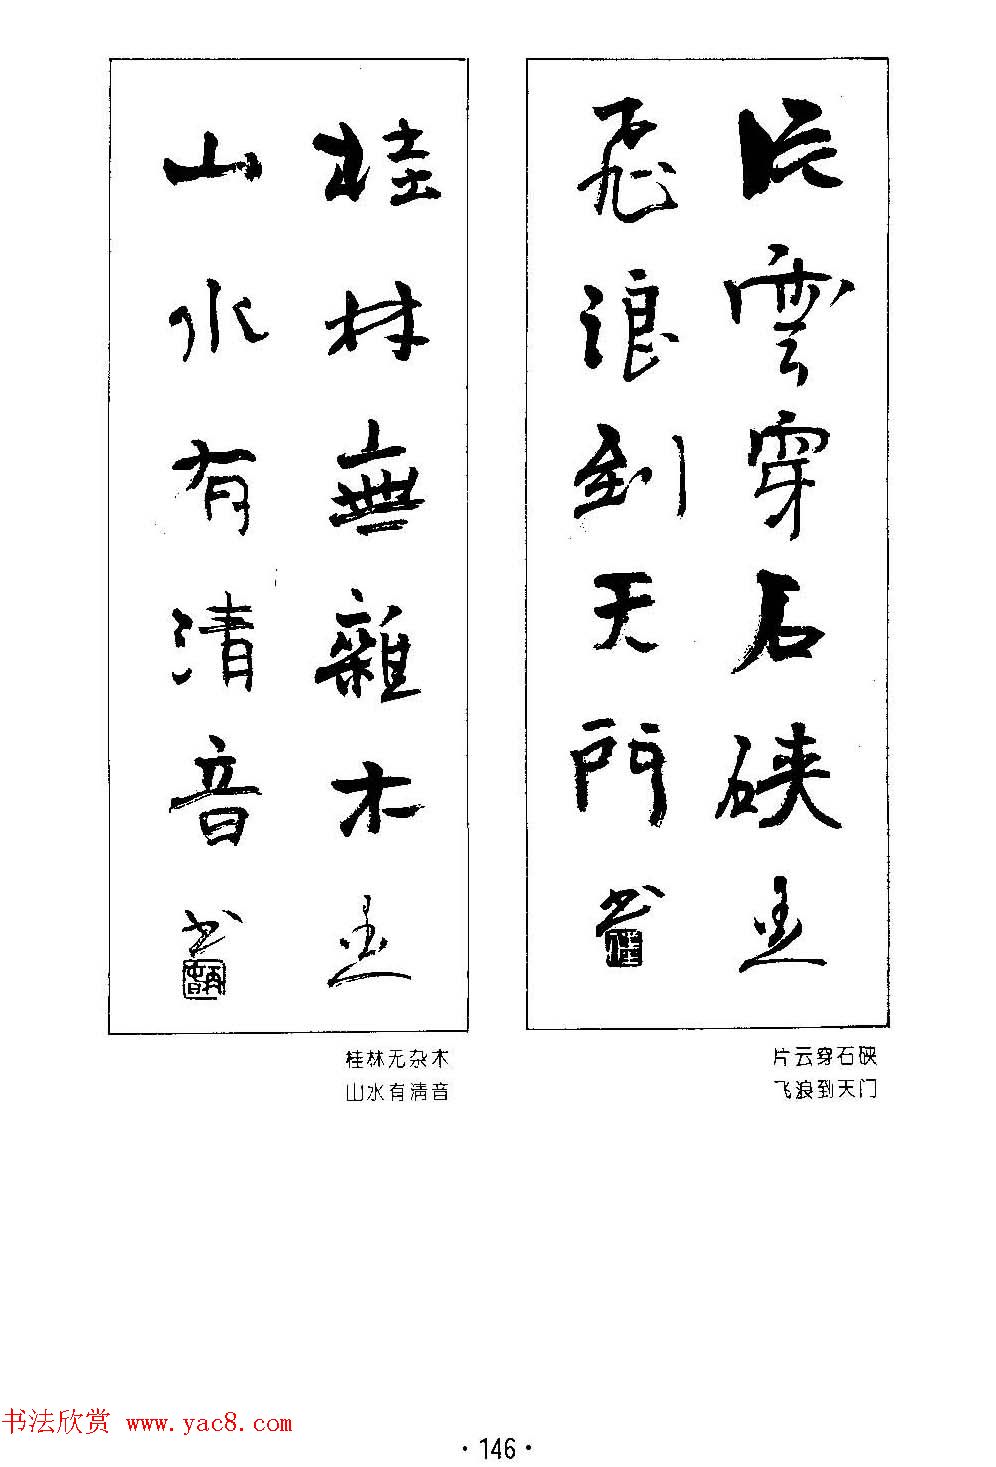 片雲穿石硤
飛浪到天門
书
片云穿石硖
飞浪到天门
桂林無雜木
山水有清音
书
桂林无杂木
山水有清音
书法欣赏 www.yac8.com
·146·